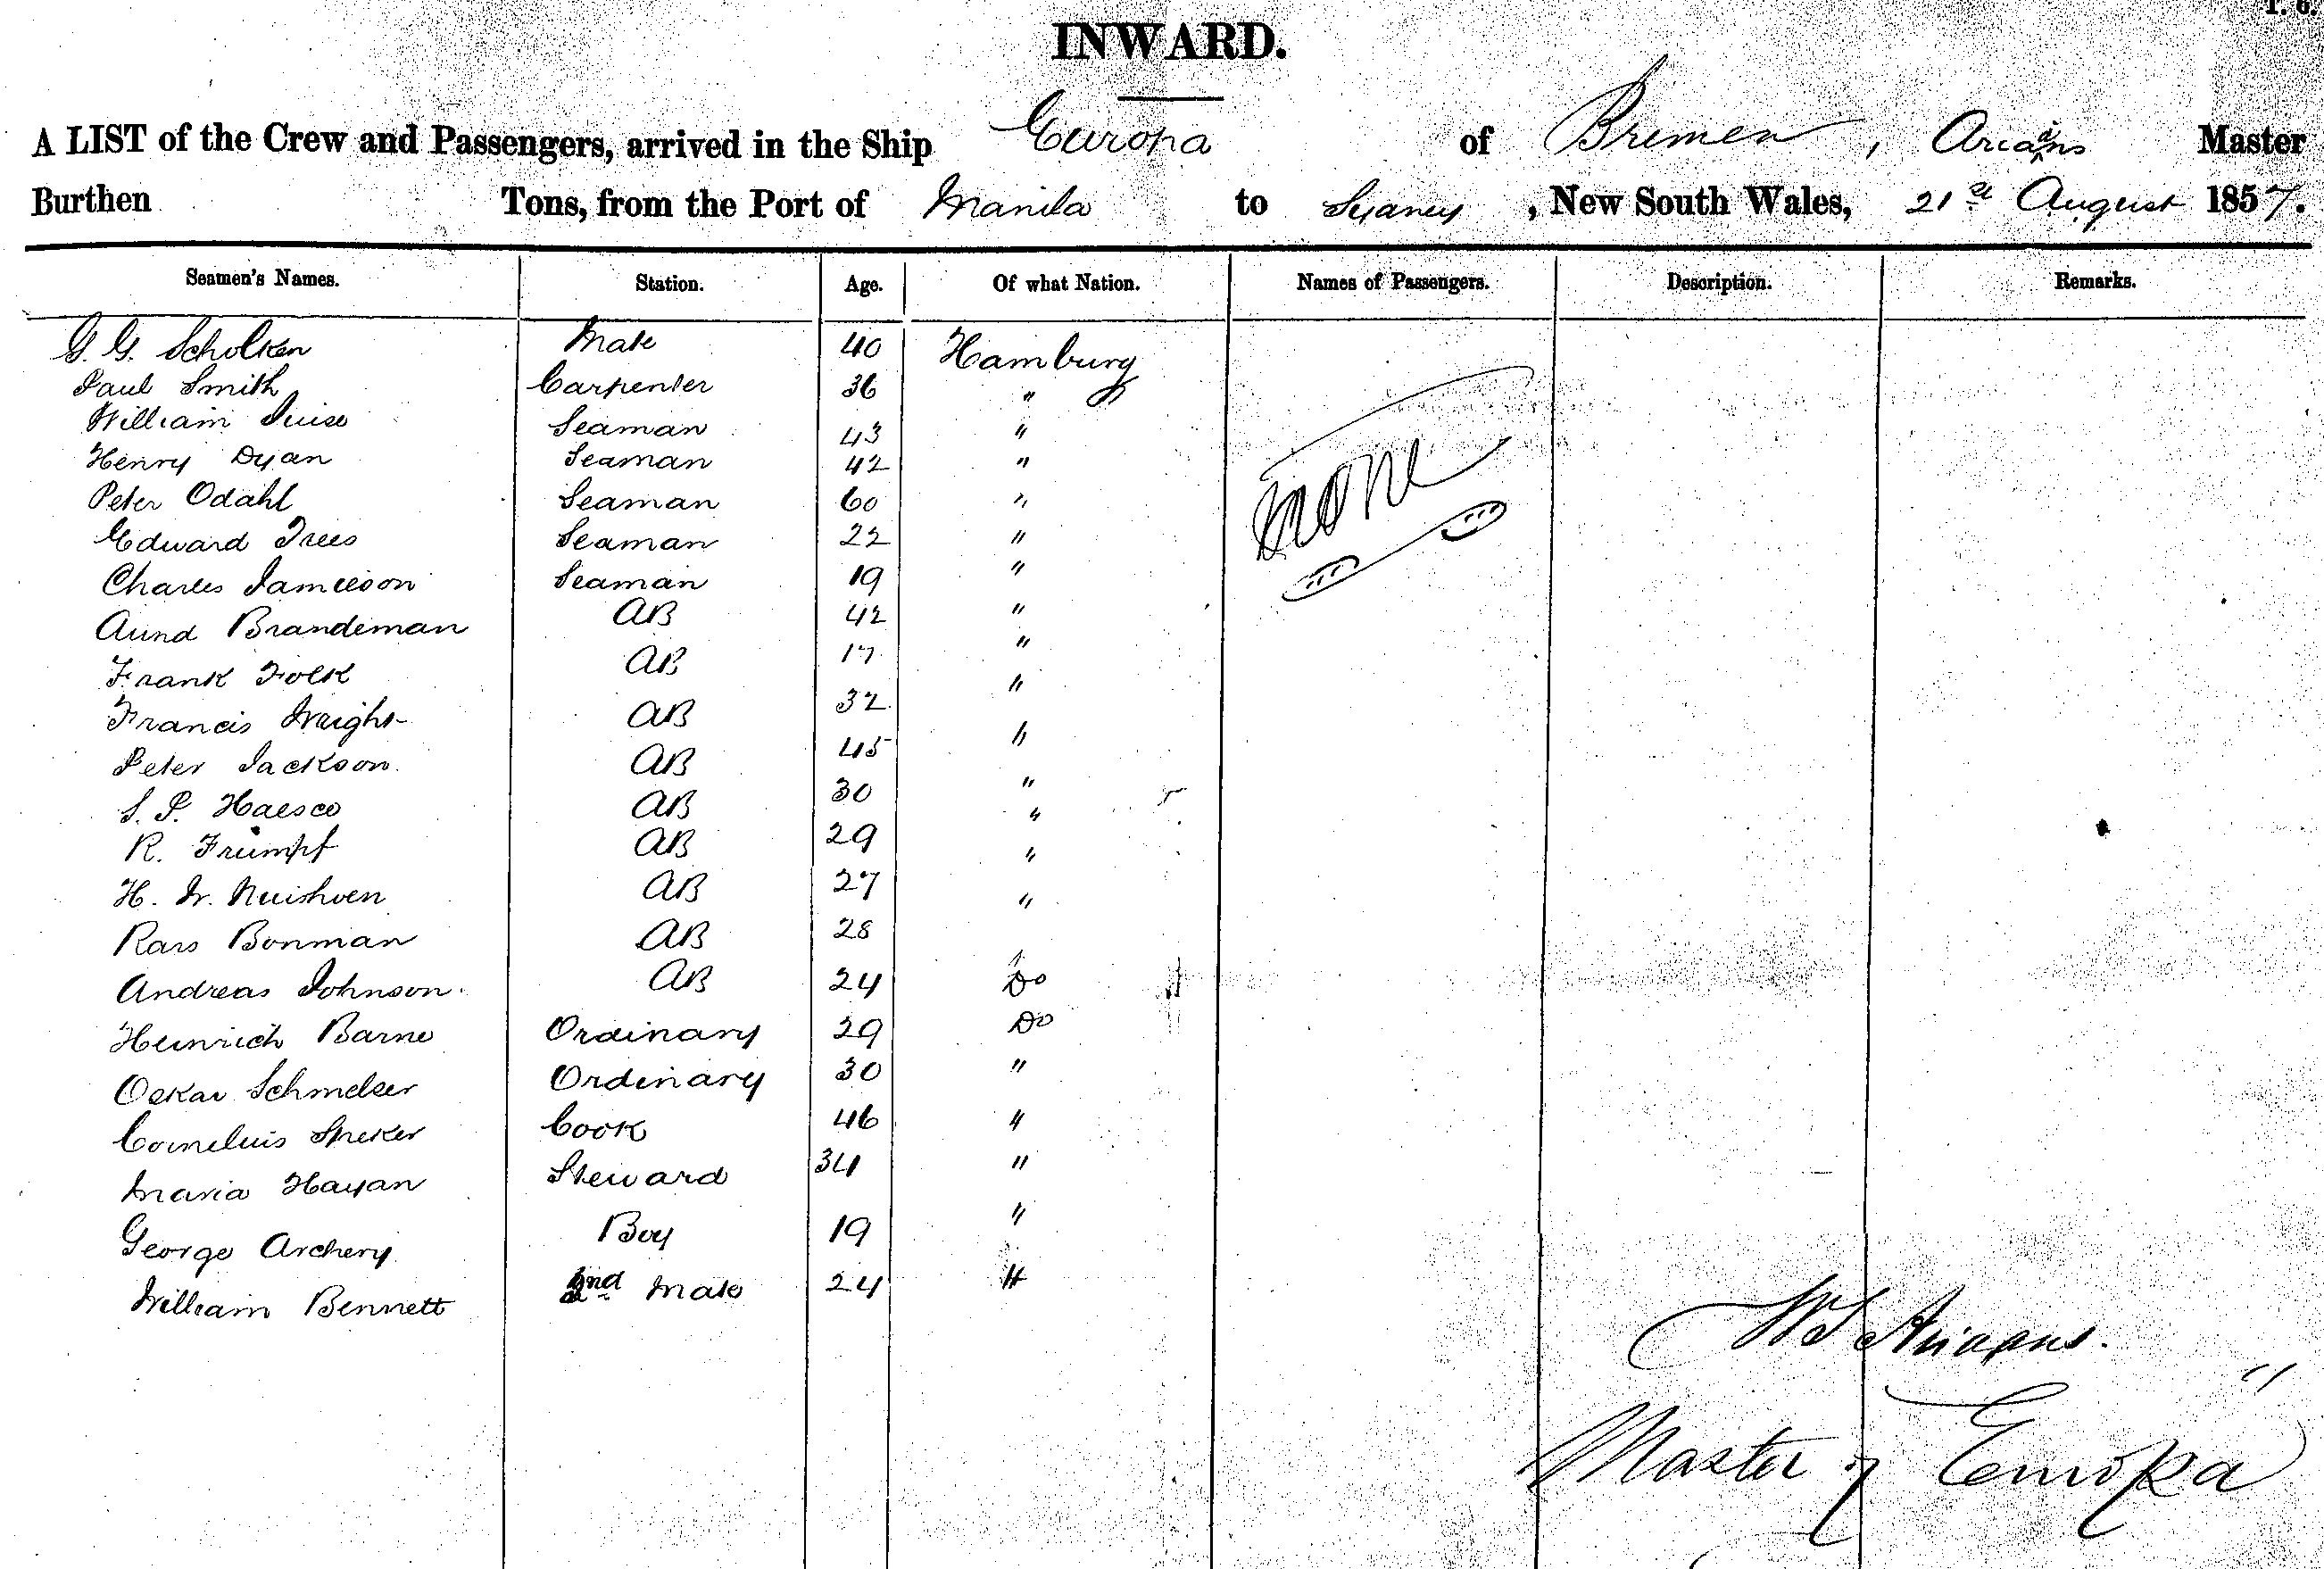 INWARD.
A LIST of the Crew and Passengers, arrived in the Ship Europa of Bremen, Arians Master
Burthen Tons, from the Port of Manila to Sydney, New South Wales, 21st August 1857.
Seamen's Names. Station. Age. Of what Nation. Names of Passengers. Description. Remarks.
G. G. Scholken Mate 40 Hamburg
Paul Smith Carpenter 36 "
William Seaman 43 "
Henry Dyan Seaman 42 "
Peter Odahl Seaman 60 " None
Edward Trees Seaman 22 "
Charles Jamieson Seaman 19 "
Brandeman AB 42 "
Frank Folk AB 17 "
Francis Wright AB 32 "
Peter Jackson. AB 45 "
S. P. Haesco AB 30 "
R. Frumpf AB 29 "
H. W. AB 27 "
Bonman AB 28 "
Andreas Johnson. AB 24 Do
Heinrich Barne Ordinary 29 Do
Oskar Schmelser Ordinary 30 "
Cornelius Speker Cook 46 "
Maria Hayan Steward 34 "
George Archery Boy 19 "
William Bennett 2nd Mate 24 "
Arians.
Master of Europa